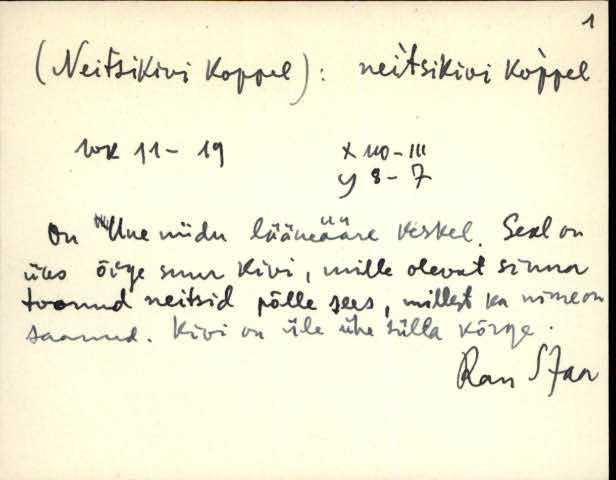 1
(Neitsikivi Koppel): neìtsikivi Kòppel
wk 11-19 x 110-111
y 8-7
On Une niidu lääneääre keskel. Seal on
üks õige suur kivi, mille olevat sinna
toonud neitsid põlle sees, millest ka nime on
saanud. Kivi on üle ühe sülla kõrge.